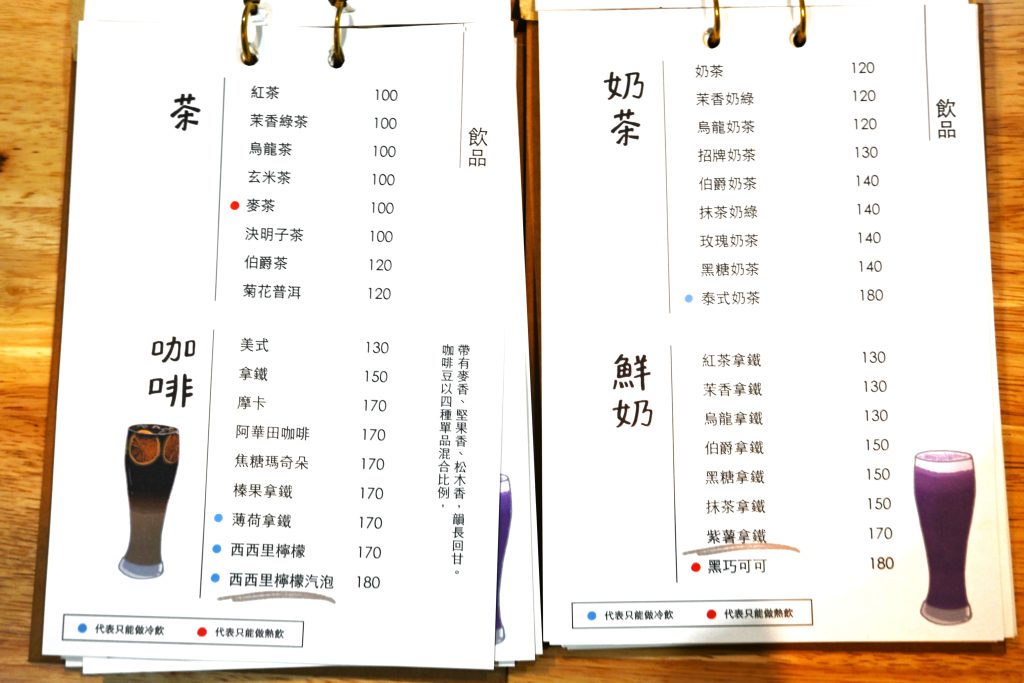 飲品
茶
紅茶 100
茉香綠茶 100
烏龍茶 100
玄米茶 100
麥茶 100
決明子茶 100
伯爵茶 120
菊花普洱 120
咖啡
美式 130
拿鐵 150
摩卡 170
阿華田咖啡 170
焦糖瑪奇朵 170
榛果拿鐵 170
薄荷拿鐵 170
西西里檸檬 170
西西里檸檬汽泡 180
帶有麥香、堅果香、松木香，韻長回甘。
咖啡豆以四種單品混合比例，
代表只能做冷飲 代表只能做熱飲
飲品
奶茶
奶茶 120
茉香奶綠 120
烏龍奶茶 120
招牌奶茶 130
伯爵奶茶 140
抹茶奶綠 140
玫瑰奶茶 140
黑糖奶茶 140
泰式奶茶 180
鮮奶
紅茶拿鐵 130
茉香拿鐵 130
烏龍拿鐵 130
伯爵拿鐵 150
黑糖拿鐵 150
抹茶拿鐵 150
紫薯拿鐵 170
黑巧可可 180
代表只能做冷飲 代表只能做熱飲